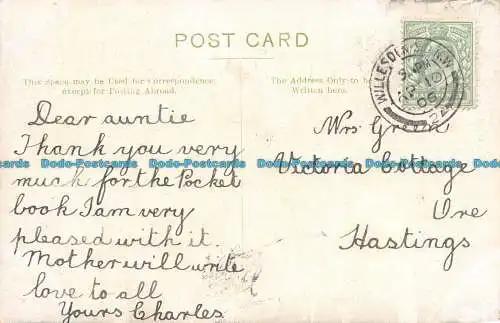 POST CARD
This Space may be Used for Correspondence
except for Posting Abroad.
The Address Only to be
Written here.
Dear auntie
Thank you very
much for the Pocket
book I am very
pleased with it.
Mother will write
love to all
Yours Charles
Mrs Green
Victoria Cottage
Ore
Hastings
WILLESDEN
Dodo-Postcards Dodo-Postcards Dodo-Postcards Dodo-Postcards Dodo-Postcards